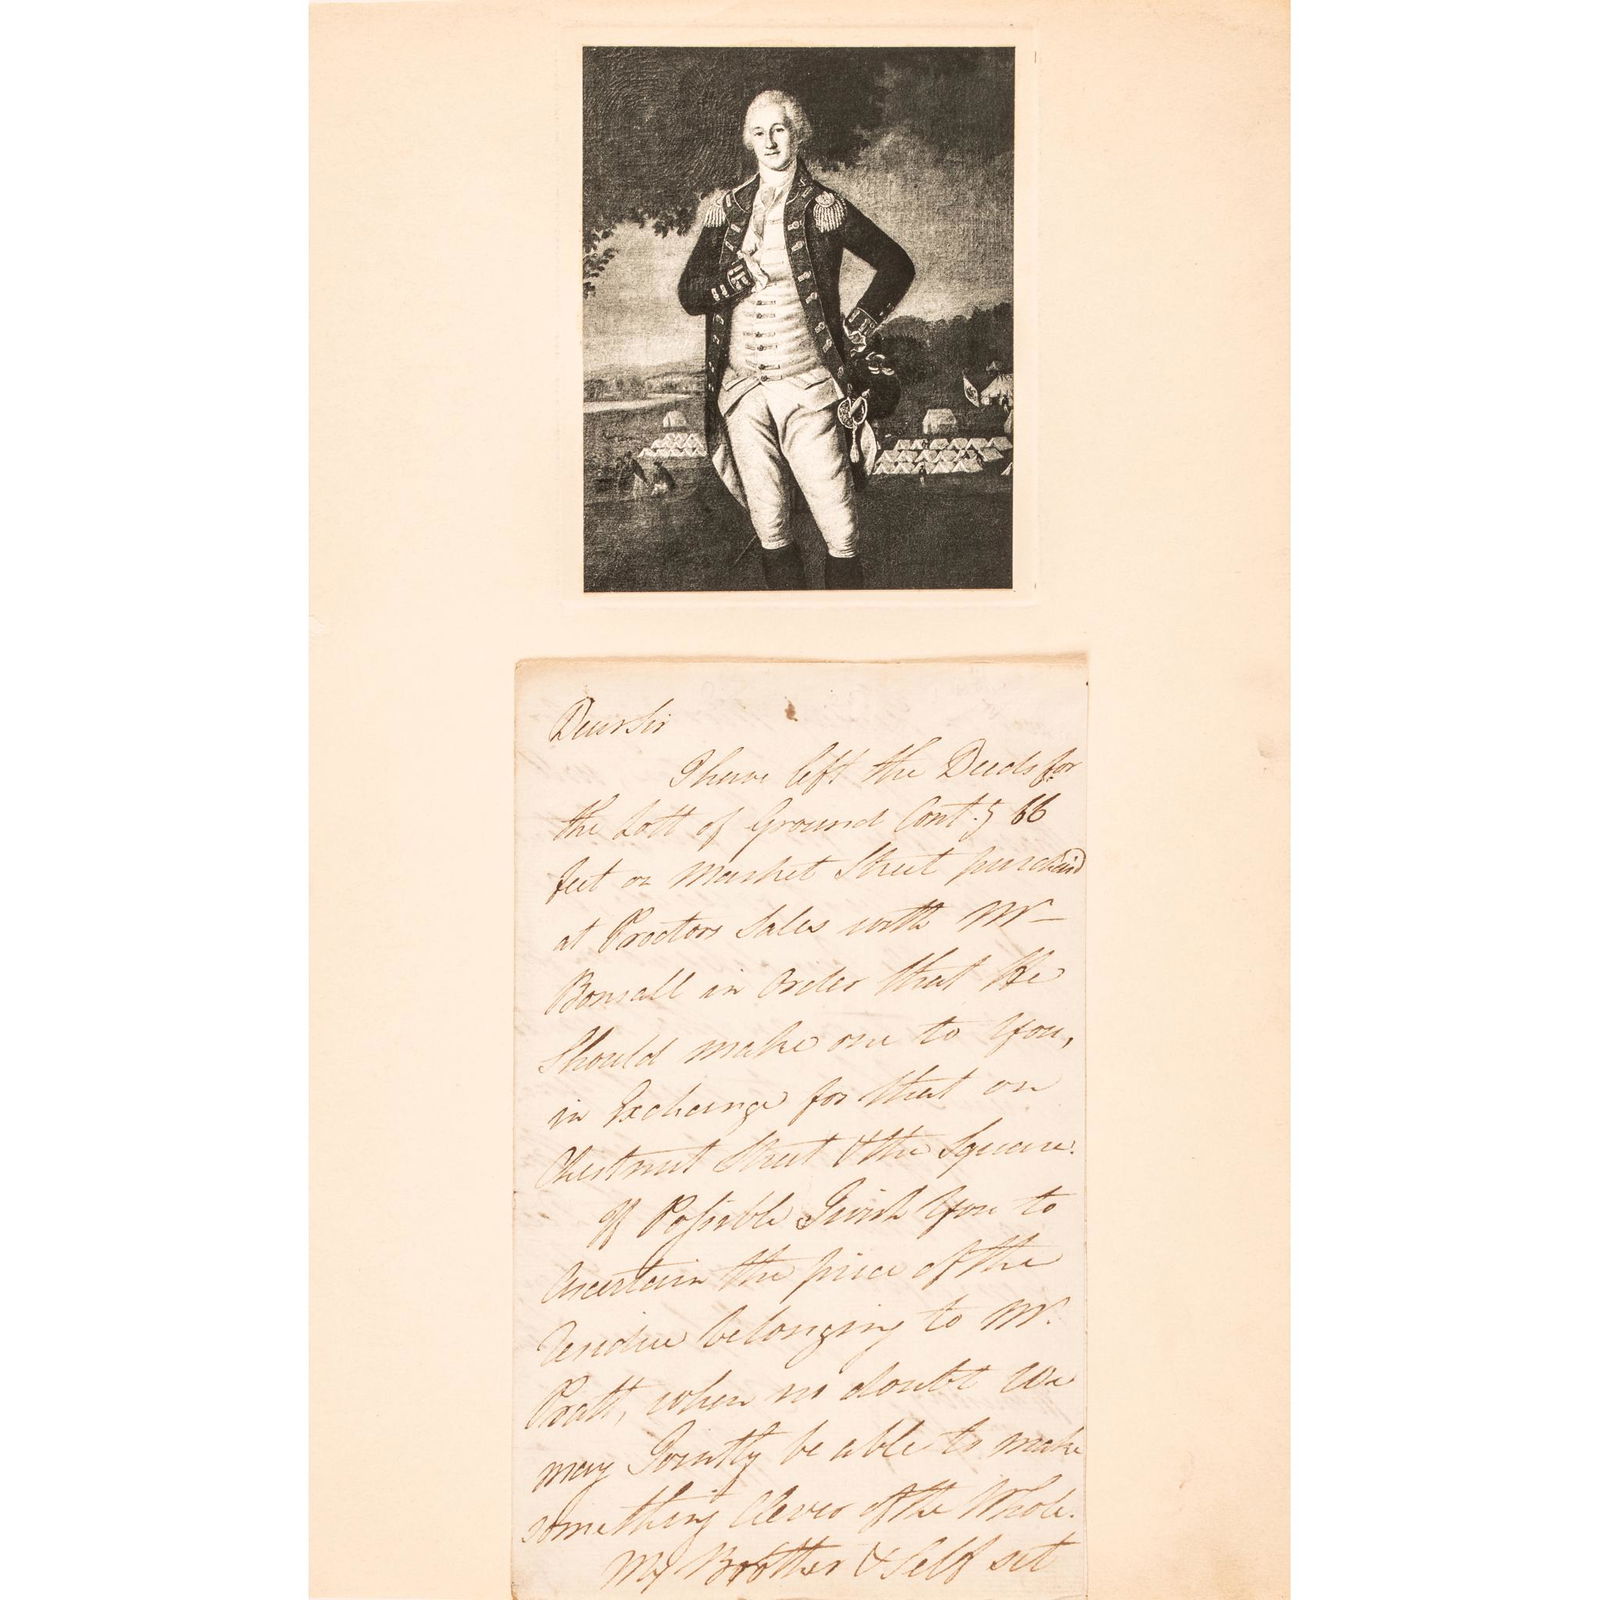 Dear Sir
I have left the Deeds for
the Lott of Ground Cont.g 66
feet on Market Street purchasd
at Proctors Sales with Mr
Bonsall in Order that He
should make one to You,
in Exchange for that on
Chestnut Street & the Square.
If Possible I wish You to
Ascertain the price of the
residue belonging to Mr.
Pratt, when no doubt We
may Jointly be able to make
something Clever of the Whole.
My Brother & Self set